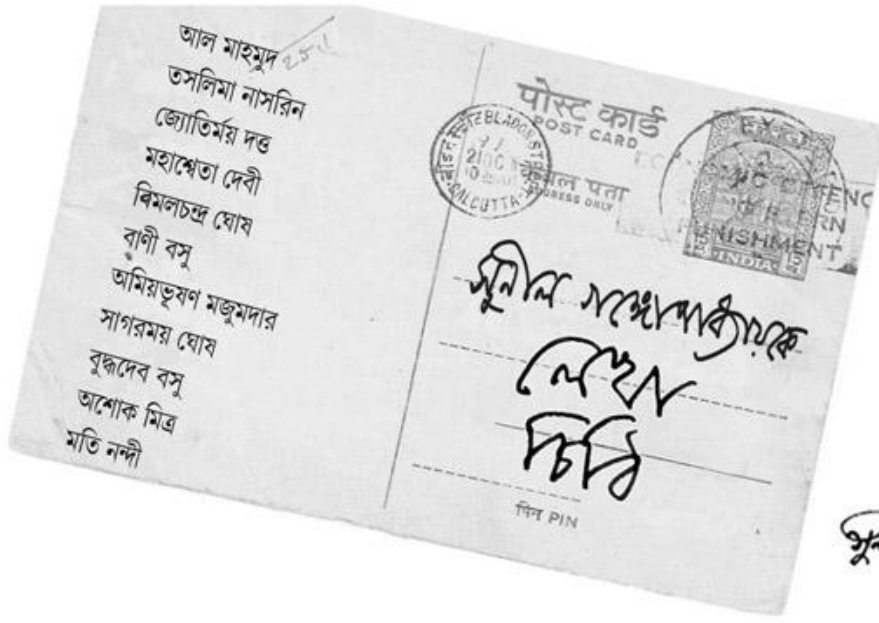 আল মাহমুদ
তসলিমা নাসরিন
জ্যোতির্ময় দত্ত
মহাশ্বেতা দেবী
বিমলচন্দ্র ঘোষ
বাণী বসু
অমিয়ভূষণ মজুমদার
সাগরময় ঘোষ
বুদ্ধদেব বসু
অশোক মিত্র
মতি নন্দী
पोस्ट कार्ड
POST CARD
केवल पता
ADDRESS ONLY
CALCUTTA
INDIA
সুনীল গঙ্গোপাধ্যায়কে
লেখা
চিঠি
पिन PIN